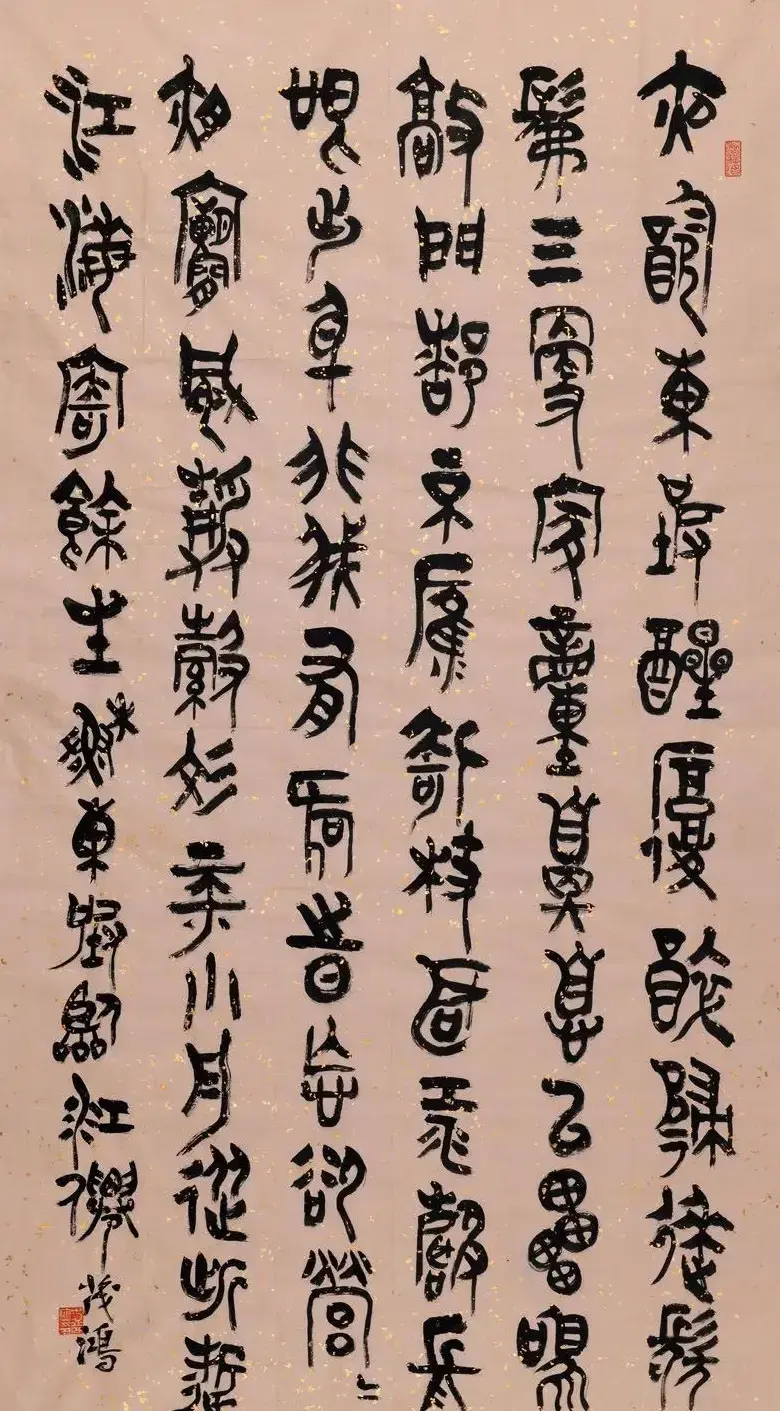 夜飲東坡醒復醉歸來髣
髴三更家童鼻息已雷鳴
敲門都不應倚杖聽江聲長
恨此身非我有何時忘卻營〻
夜闌風靜縠紋平小舟從此逝
江海寄餘生蘇東坡臨江僊
茂鴻